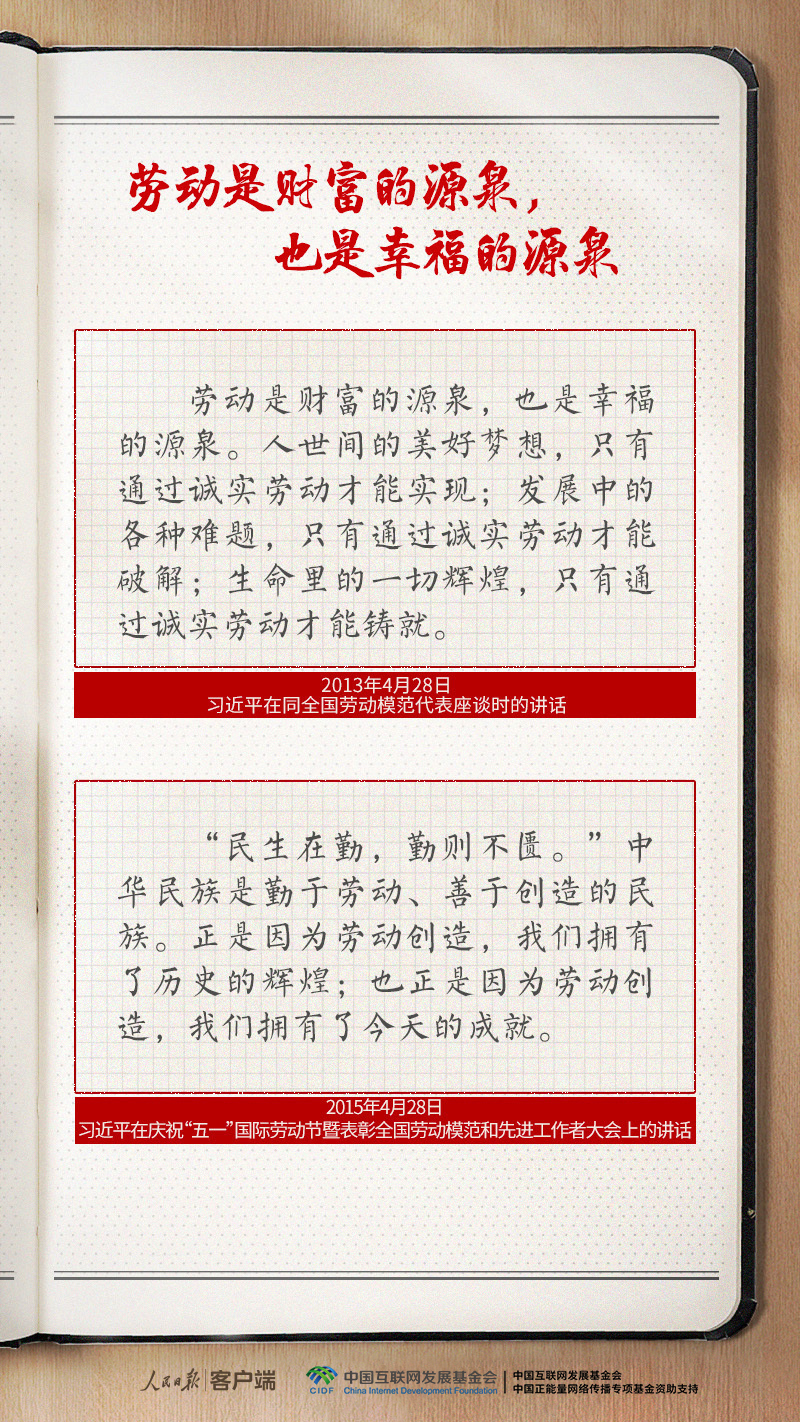 劳动是财富的源泉，
也是幸福的源泉
劳动是财富的源泉，也是幸福
的源泉。人世间的美好梦想，只有
通过诚实劳动才能实现；发展中的
各种难题，只有通过诚实劳动才能
破解；生命里的一切辉煌，只有通
过诚实劳动才能铸就。
2013年4月28日
习近平在同全国劳动模范代表座谈时的讲话
“民生在勤，勤则不匮。”中
华民族是勤于劳动、善于创造的民
族。正是因为劳动创造，我们拥有
了历史的辉煌；也正是因为劳动创
造，我们拥有了今天的成就。
2015年4月28日
习近平在庆祝“五一”国际劳动节暨表彰全国劳动模范和先进工作者大会上的讲话
人民日报 客户端
CIDF
中国互联网发展基金会
China Internet Development Foundation
中国互联网发展基金会
中国正能量网络传播专项基金资助支持